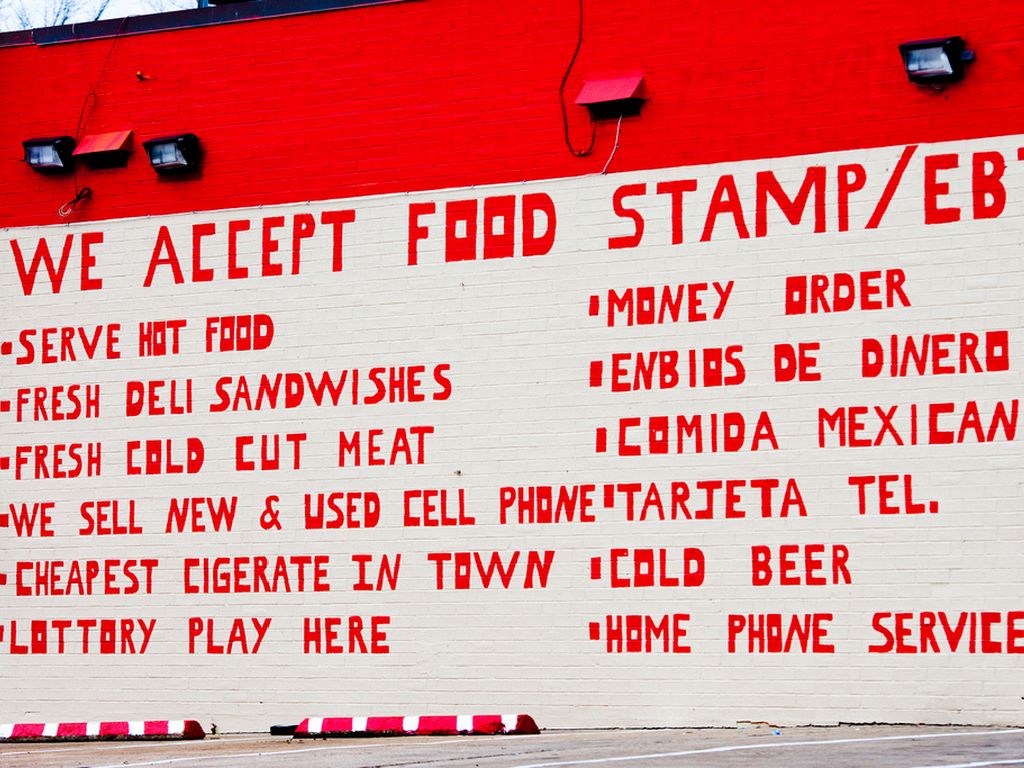 WE ACCEPT FOOD STAMP/EBT
▪SERVE HOT FOOD
▪FRESH DELI SANDWISHES
▪FRESH COLD CUT MEAT
▪WE SELL NEW & USED CELL PHONE
▪CHEAPEST CIGERATE IN TOWN
▪LOTTORY PLAY HERE
▪MONEY ORDER
▪ENBIOS DE DINERO
▪COMIDA MEXICAN
▪TARJETA TEL.
▪COLD BEER
▪HOME PHONE SERVICE